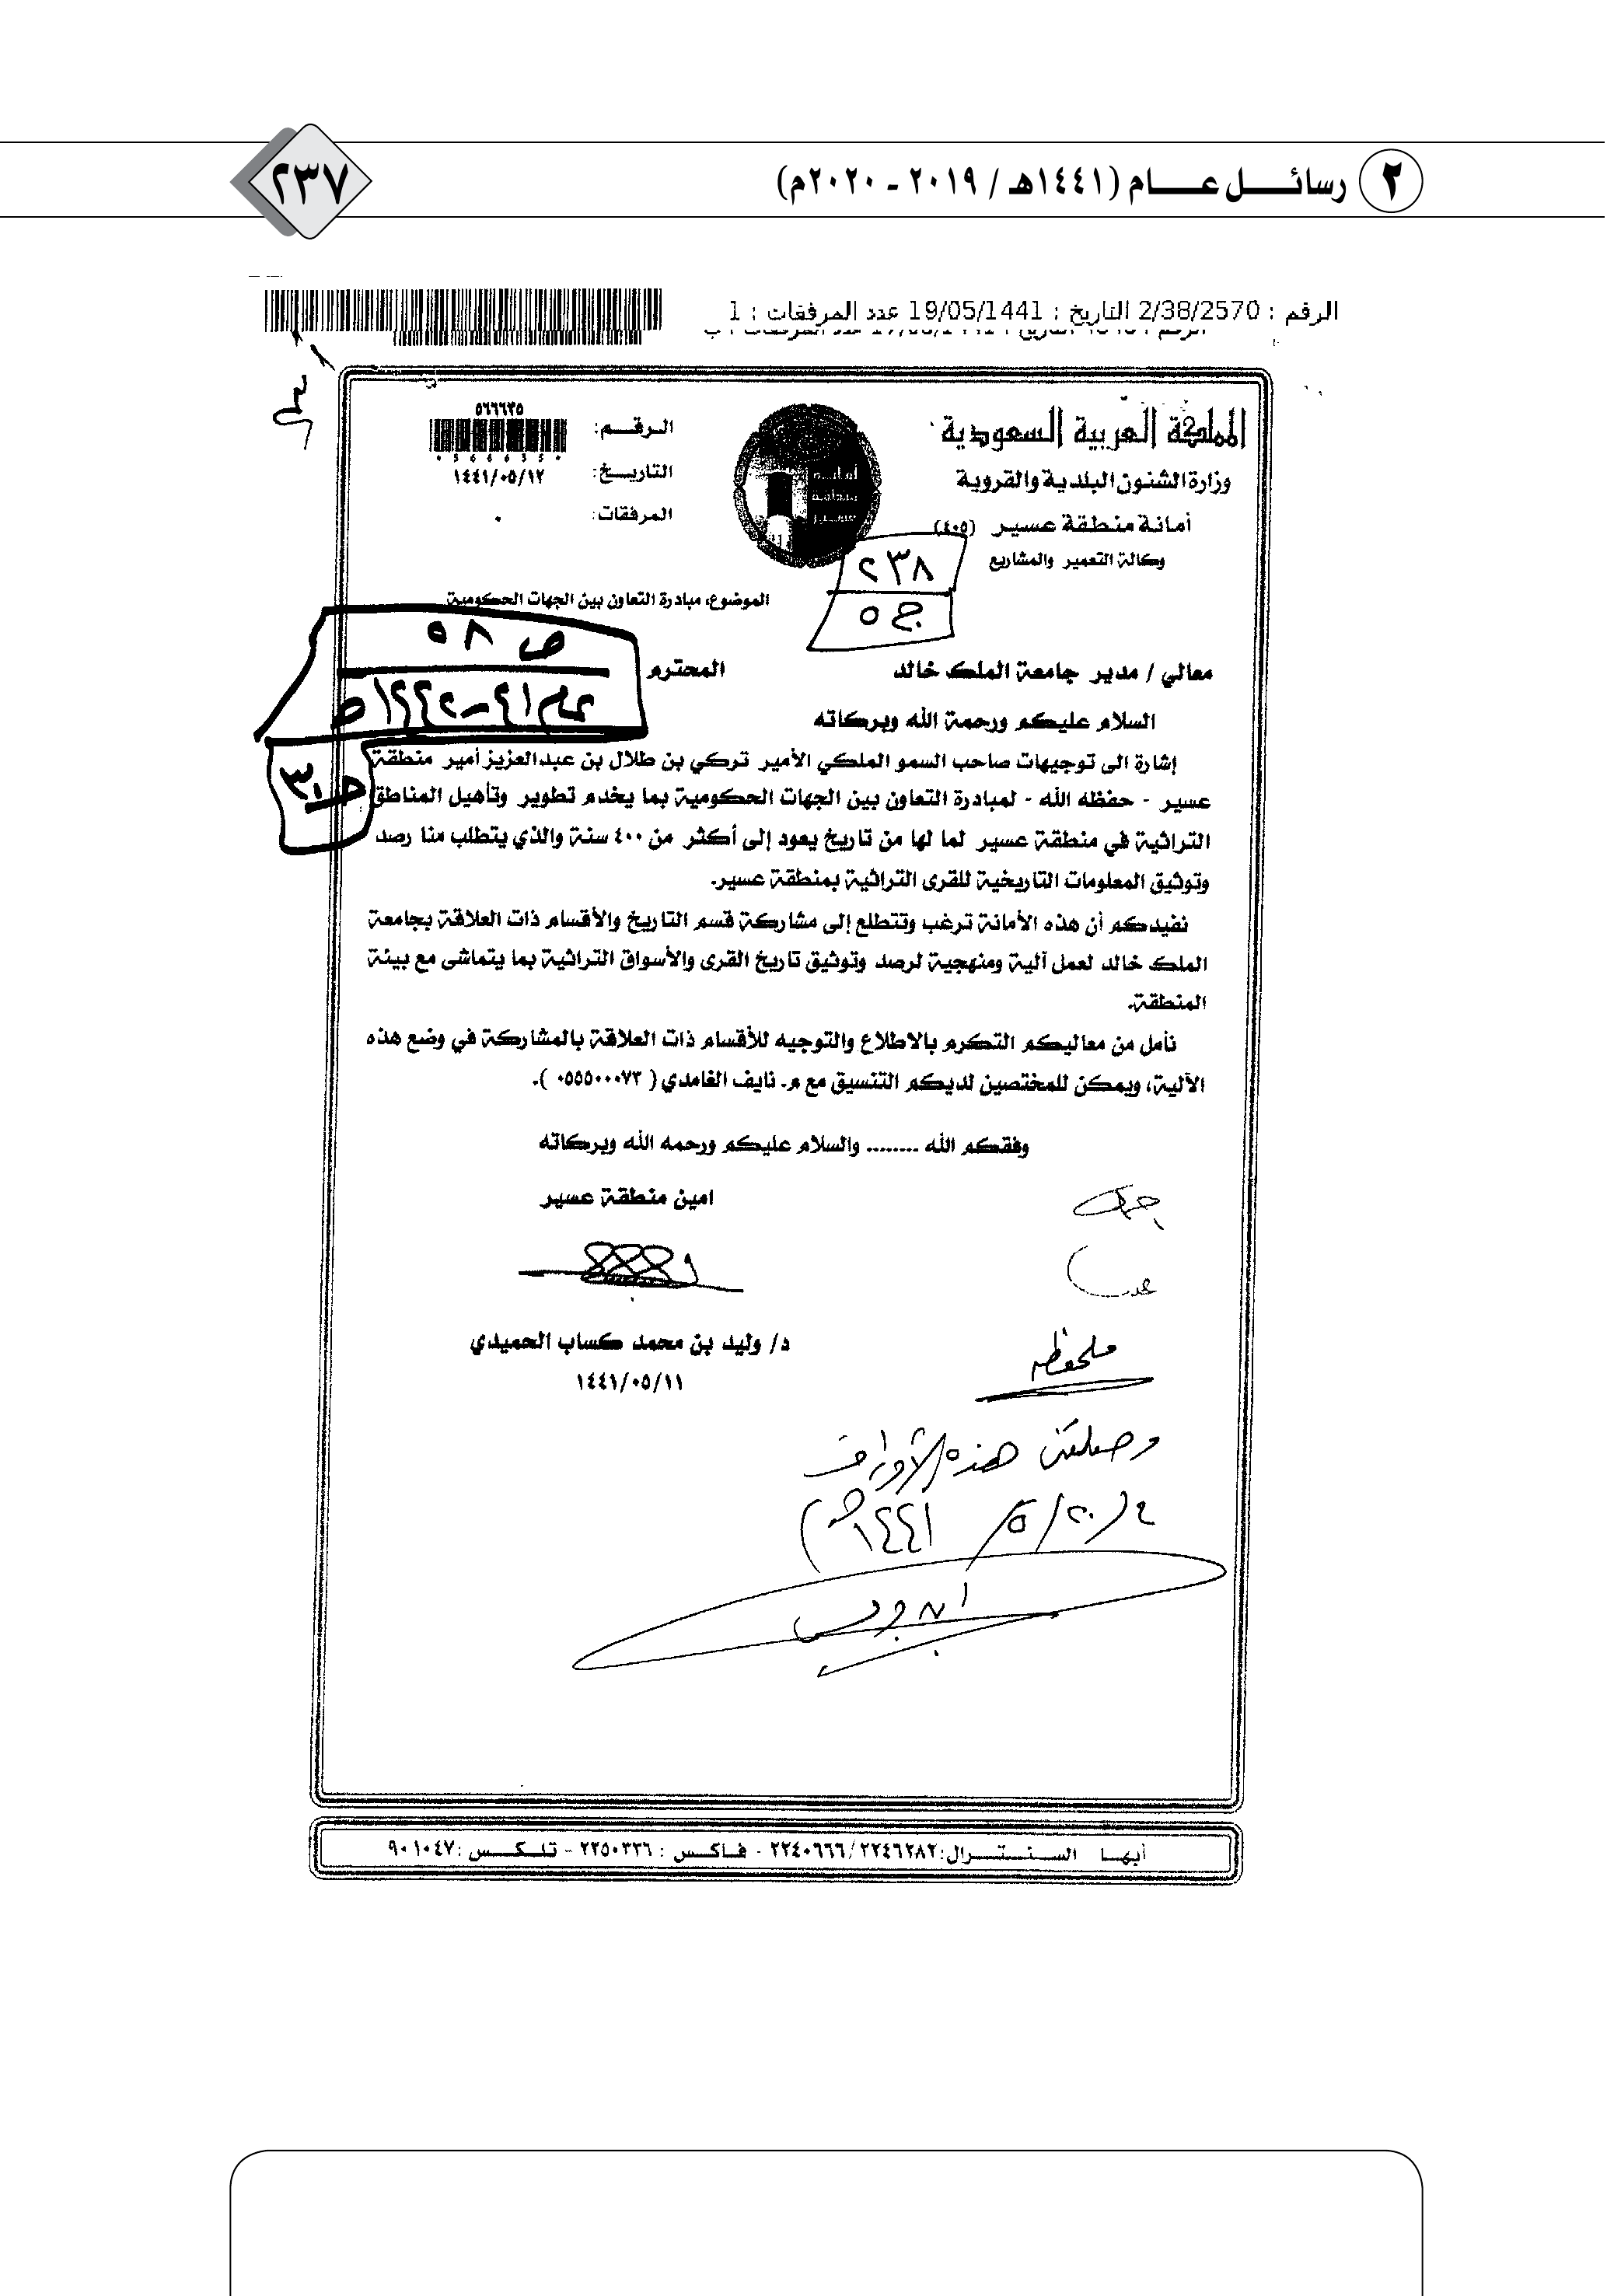 ٢ رسائل عام (١٤٤١هـ / ٢٠١٩ - ٢٠٢٠م)
٢٣٧
الرقم : 2/38/2570 التاريخ : 19/05/1441 عدد المرفقات : 1
المملكة العربية السعودية
وزارة الشئون البلدية والقروية
أمانة منطقة عسير (٤٠٥)
وكالة التعمير والمشاريع
أمانة منطقة عسير
٥٦٦٦٣٥
الرقم:
التاريخ: ١٤٤١/٠٥/١٢
المرفقات: ٠
٢٣٨
ج ٥
الموضوع: مبادرة التعاون بين الجهات الحكومية
ص ٥٨
معالي / مدير جامعة الملك خالد المحترم
السلام عليكم ورحمة الله وبركاته
إشارة الى توجيهات صاحب السمو الملكي الأمير تركي بن طلال بن عبدالعزيز أمير منطقة
عسير - حفظه الله - لمبادرة التعاون بين الجهات الحكومية بما يخدم تطوير وتأهيل المناطق
التراثية في منطقة عسير لما لها من تاريخ يعود إلى أكثر من ٤٠٠ سنة والذي يتطلب منا رصد
وتوثيق المعلومات التاريخية للقرى التراثية بمنطقة عسير.
نفيدكم أن هذه الأمانة ترغب وتتطلع إلى مشاركة قسم التاريخ والأقسام ذات العلاقة بجامعة
الملك خالد لعمل آلية ومنهجية لرصد وتوثيق تاريخ القرى والأسواق التراثية بما يتماشى مع بيئة
المنطقة.
نأمل من معاليكم التكرم بالاطلاع والتوجيه للأقسام ذات العلاقة بالمشاركة في وضع هذه
الآلية، ويمكن للمختصين لديكم التنسيق مع م. نايف الغامدي ( ٠٥٥٥٠٠٠٧٣ ).
وفقكم الله ........ والسلام عليكم ورحمه الله وبركاته
امين منطقة عسير
د/ وليد بن محمد كساب الحميدي
١٤٤١/٠٥/١١
ملحوظه
وصلتني هذه الأوراق
في ٢٠/٥/١٤٤١هـ)
ابن جريس
أبها السنترال: ٢٢٤٠٦٦٦/٢٢٤٦٢٨٢ - فاكس : ٢٢٥٠٣٣٦ - تلكس : ٩٠١٠٤٧